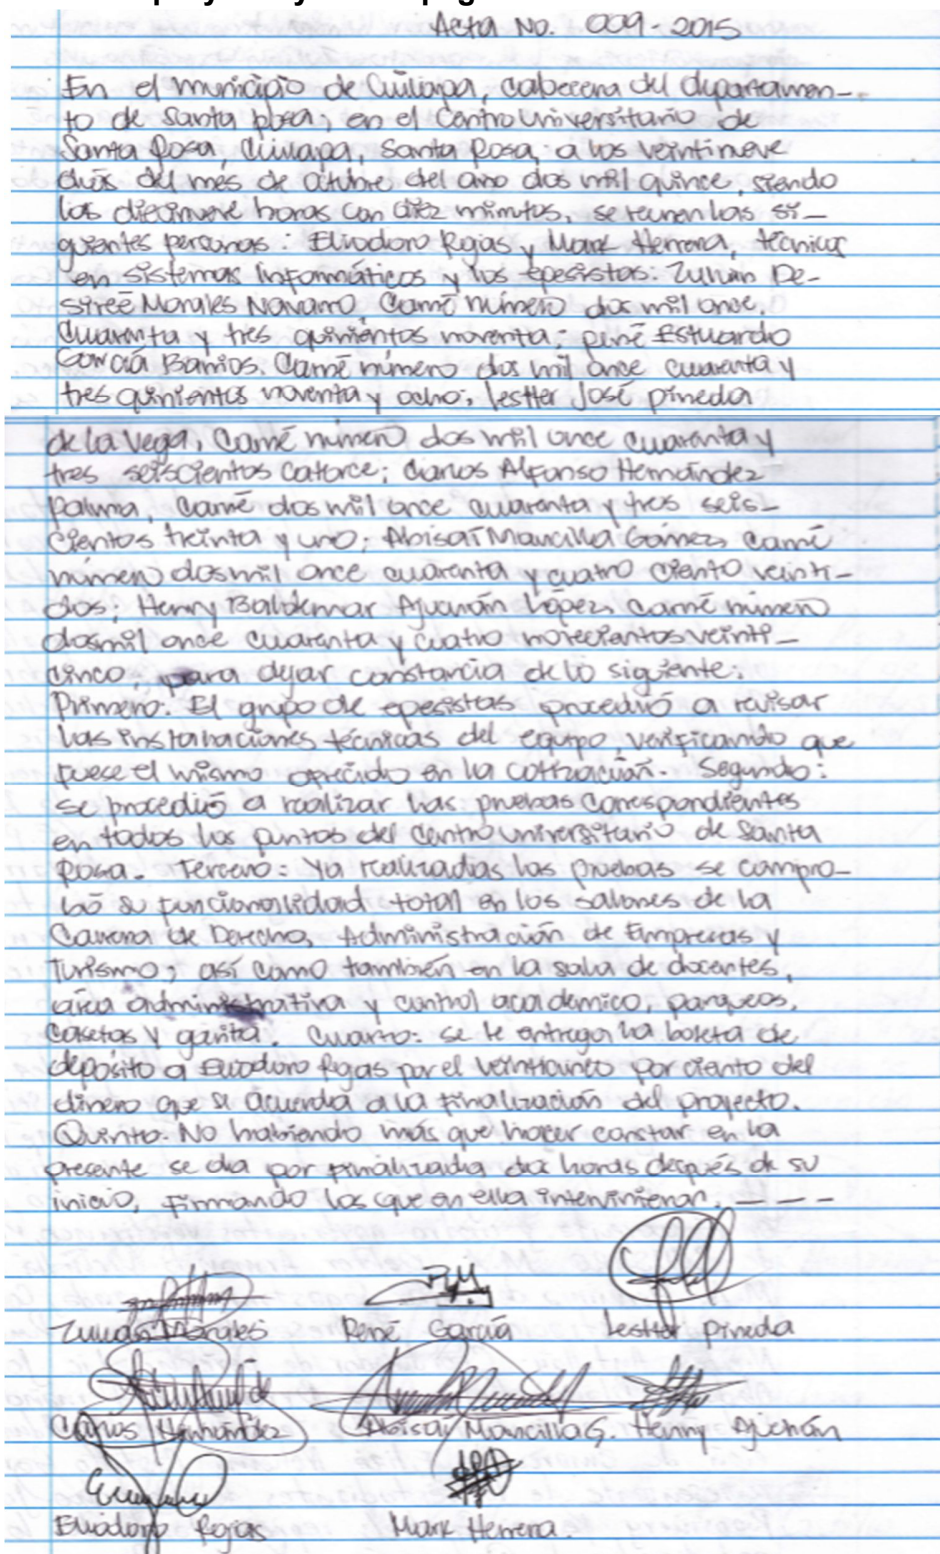 Acta No. 009-2015
En el municipio de Cuilapa, cabecera del departamen-
to de Santa Rosa, en el Centro Universitario de
Santa Rosa, Cuilapa, Santa Rosa, a los veintinueve
días del mes de octubre del año dos mil quince, siendo
las diecinueve horas con diez minutos, se reunen las si-
guientes personas: Eliodoro Rojas y Mark Herrera, técnicos
en sistemas informáticos y los epesistas: Zulian De-
sireé Morales Navarro, Carné número dos mil once,
cuarenta y tres quinientos noventa; René Estuardo
García Barrios. Carné número dos mil once cuarenta y
tres quinientos noventa y ocho; Lestter José Pineda
de la Vega, Carné número dos mil once cuarenta y
tres seiscientos catorce; Carlos Alfonso Hernández
Palma, Carné dos mil once cuarenta y tres seis-
cientos treinta y uno; Abisaí Mancilla Gámez, Carné
número dos mil once cuarenta y cuatro ciento veinti-
dos; Henry Baldemar Ajucnán López, Carné número
dosmil once cuarenta y cuatro novecientos veinti-
cinco; para dejar constancia de lo siguiente:
Primero: El grupo de epesistas procedió a revisar
las instalaciones técnicas del equipo, verificando que
fuese el mismo ofrecido en la cotización. Segundo:
se procedió a realizar las pruebas correspondientes
en todos los puntos del centro universitario de Santa
Rosa. Tercero: ya realizadas las pruebas se compro-
bó su funcionalidad total en los salones de la
Carrera de Derecho, Administración de Empresas y
Turismo; así como también en la sala de docentes,
área administrativa y control académico, parqueos,
casetas y garita. Cuarto: se le entrega la boleta de
depósito a Eliodoro Rojas por el veinticinco por ciento del
dinero que se acuerda a la finalización del proyecto.
Quinto. No habiendo más que hacer constar en la
presente se da por finalizada dos horas después de su
inicio, firmando los que en ella intervinieron. - - - -
Zulian Morales René García Lestter Pineda
Carlos Hernández Abisaí Mancilla G. Henry Ajchán
Eliodoro Rojas Mark Herrera.